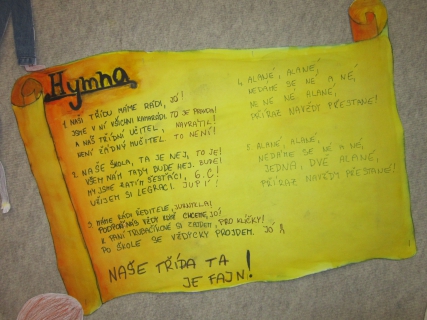 Hymna
1. NAŠI TŘÍDU MÁME RÁDI, JÓ!
JSME V NÍ VŠICHNI KAMARÁDI. TO JE PRAVDA!
A NÁŠ TŘÍDNÍ UČITEL, NAVRÁTIL!
NENÍ ŽÁDNÝ MUČITEL. TO NENÍ!
2. NAŠE ŠKOLA, TA JE NEJ, TO JE!
VŠEM NÁM TADY BUDE HEJ. BUDE!
MY JSME ZATÍM ŠESŤÁCI, 6.C!
UŽIJEM SI LEGRACI. JUPÍ!
3. MÁME RÁDI ŘEDITELE,
PODPOŘÍ NÁS VŽDY KDYŽ CHCEME, JO!
K PANÍ TRUBAČÍKOVÉ SI ZAJDEM, PRO KLÍČKY!
PO ŠKOLE SE VŽDYCKY PROJDEM. JO
NAŠE TŘÍDA TA
JE FAJN!
4. ALANÉ, ALANÉ,
NEDÁME SE NE A NÉ,
NE NE NE ALANÉ,
NAVŽDY PŘESTANE!
5. ALANÉ, ALANÉ,
NEDÁME SE NE A NÉ,
JEDNA, DVĚ ALANÉ,
NAVŽDY PŘESTANE!